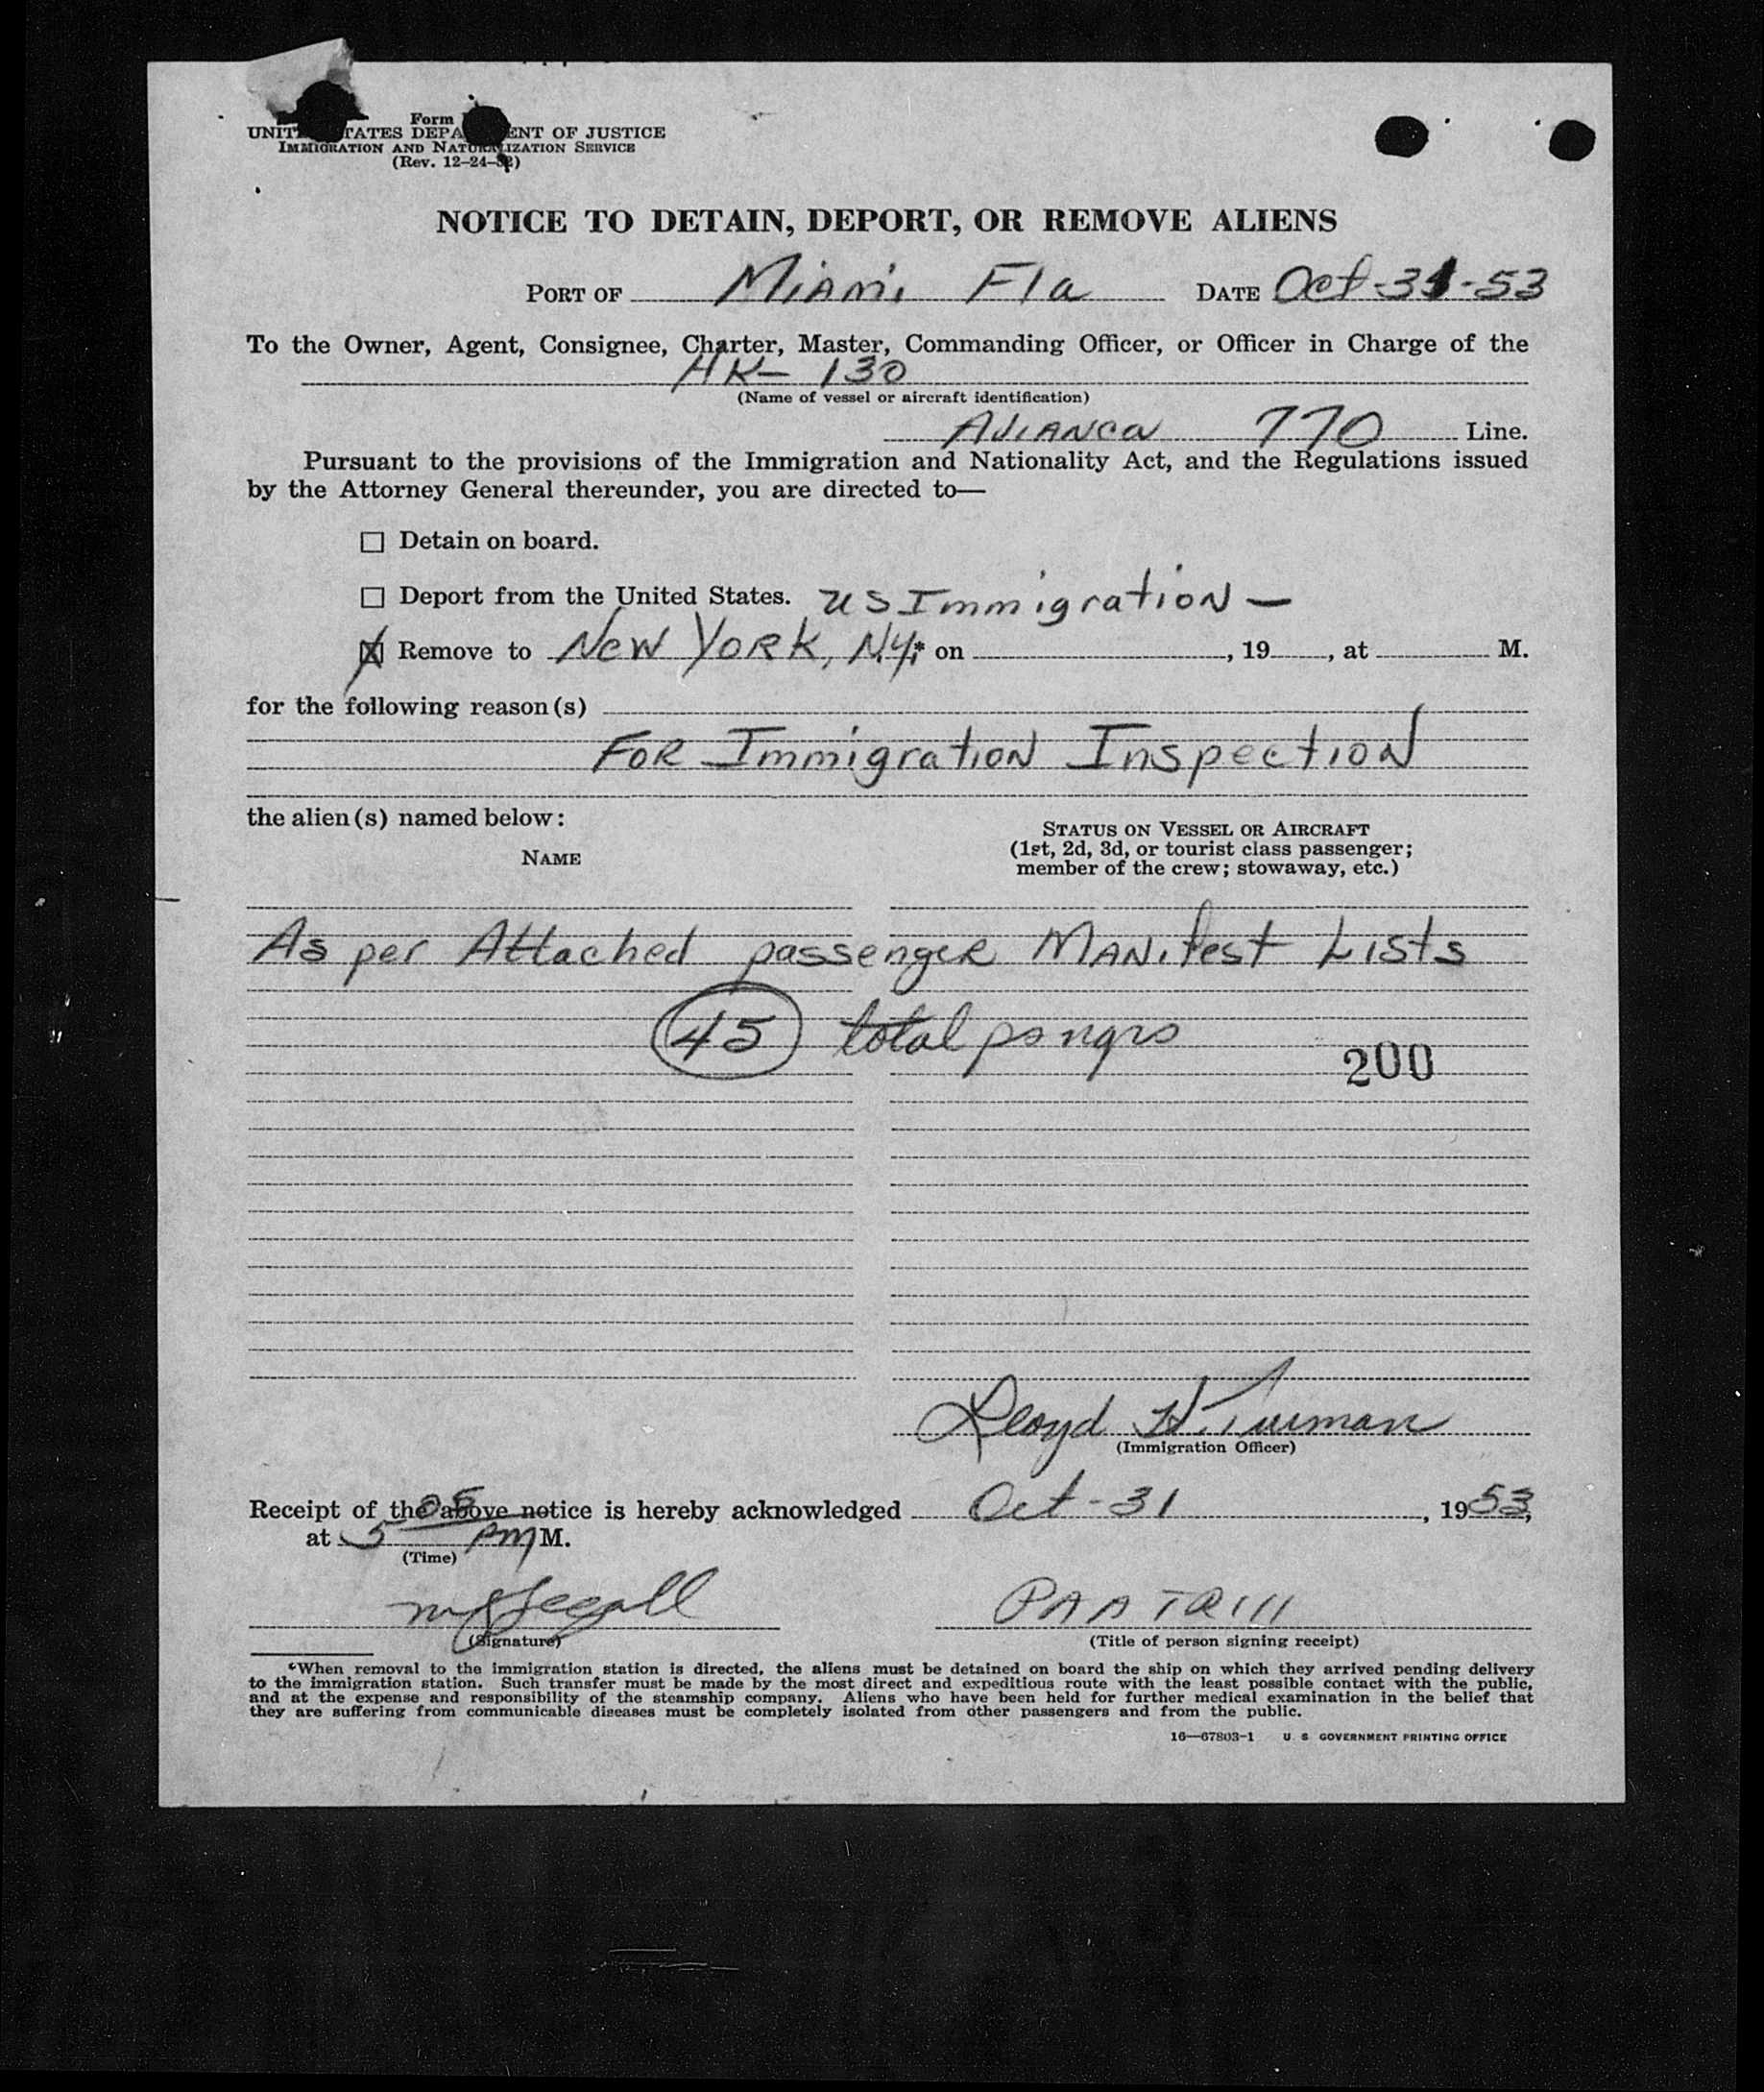 Form
UNITED STATES DEPARTMENT OF JUSTICE
IMMIGRATION AND NATURALIZATION SERVICE
(Rev. 12-24-52)
NOTICE TO DETAIN, DEPORT, OR REMOVE ALIENS
PORT OF Miami Fla DATE Oct-31-53
To the Owner, Agent, Consignee, Charter, Master, Commanding Officer, or Officer in Charge of the
HK- 130
(Name of vessel or aircraft identification)
Avianca 770 Line.
Pursuant to the provisions of the Immigration and Nationality Act, and the Regulations issued
by the Attorney General thereunder, you are directed to—
☐ Detain on board.
☐ Deport from the United States. US Immigration —
☒ Remove to New York, N.Y.* on , 19 , at M.
for the following reason(s)
For Immigration Inspection
the alien(s) named below:
NAME
STATUS ON VESSEL OR AIRCRAFT
(1st, 2d, 3d, or tourist class passenger;
member of the crew; stowaway, etc.)
As per Attached passenger Manifest Lists
45 total psngrs
200
Lloyd
(Immigration Officer)
Receipt of the above notice is hereby acknowledged Oct-31, 1953,
at 5 05 PM M.
(Time)
PAA
(Signature)
(Title of person signing receipt)
*When removal to the immigration station is directed, the aliens must be detained on board the ship on which they arrived pending delivery
to the immigration station. Such transfer must be made by the most direct and expeditious route with the least possible contact with the public,
and at the expense and responsibility of the steamship company. Aliens who have been held for further medical examination in the belief that
they are suffering from communicable diseases must be completely isolated from other passengers and from the public.
16—67803-1 U. S. GOVERNMENT PRINTING OFFICE